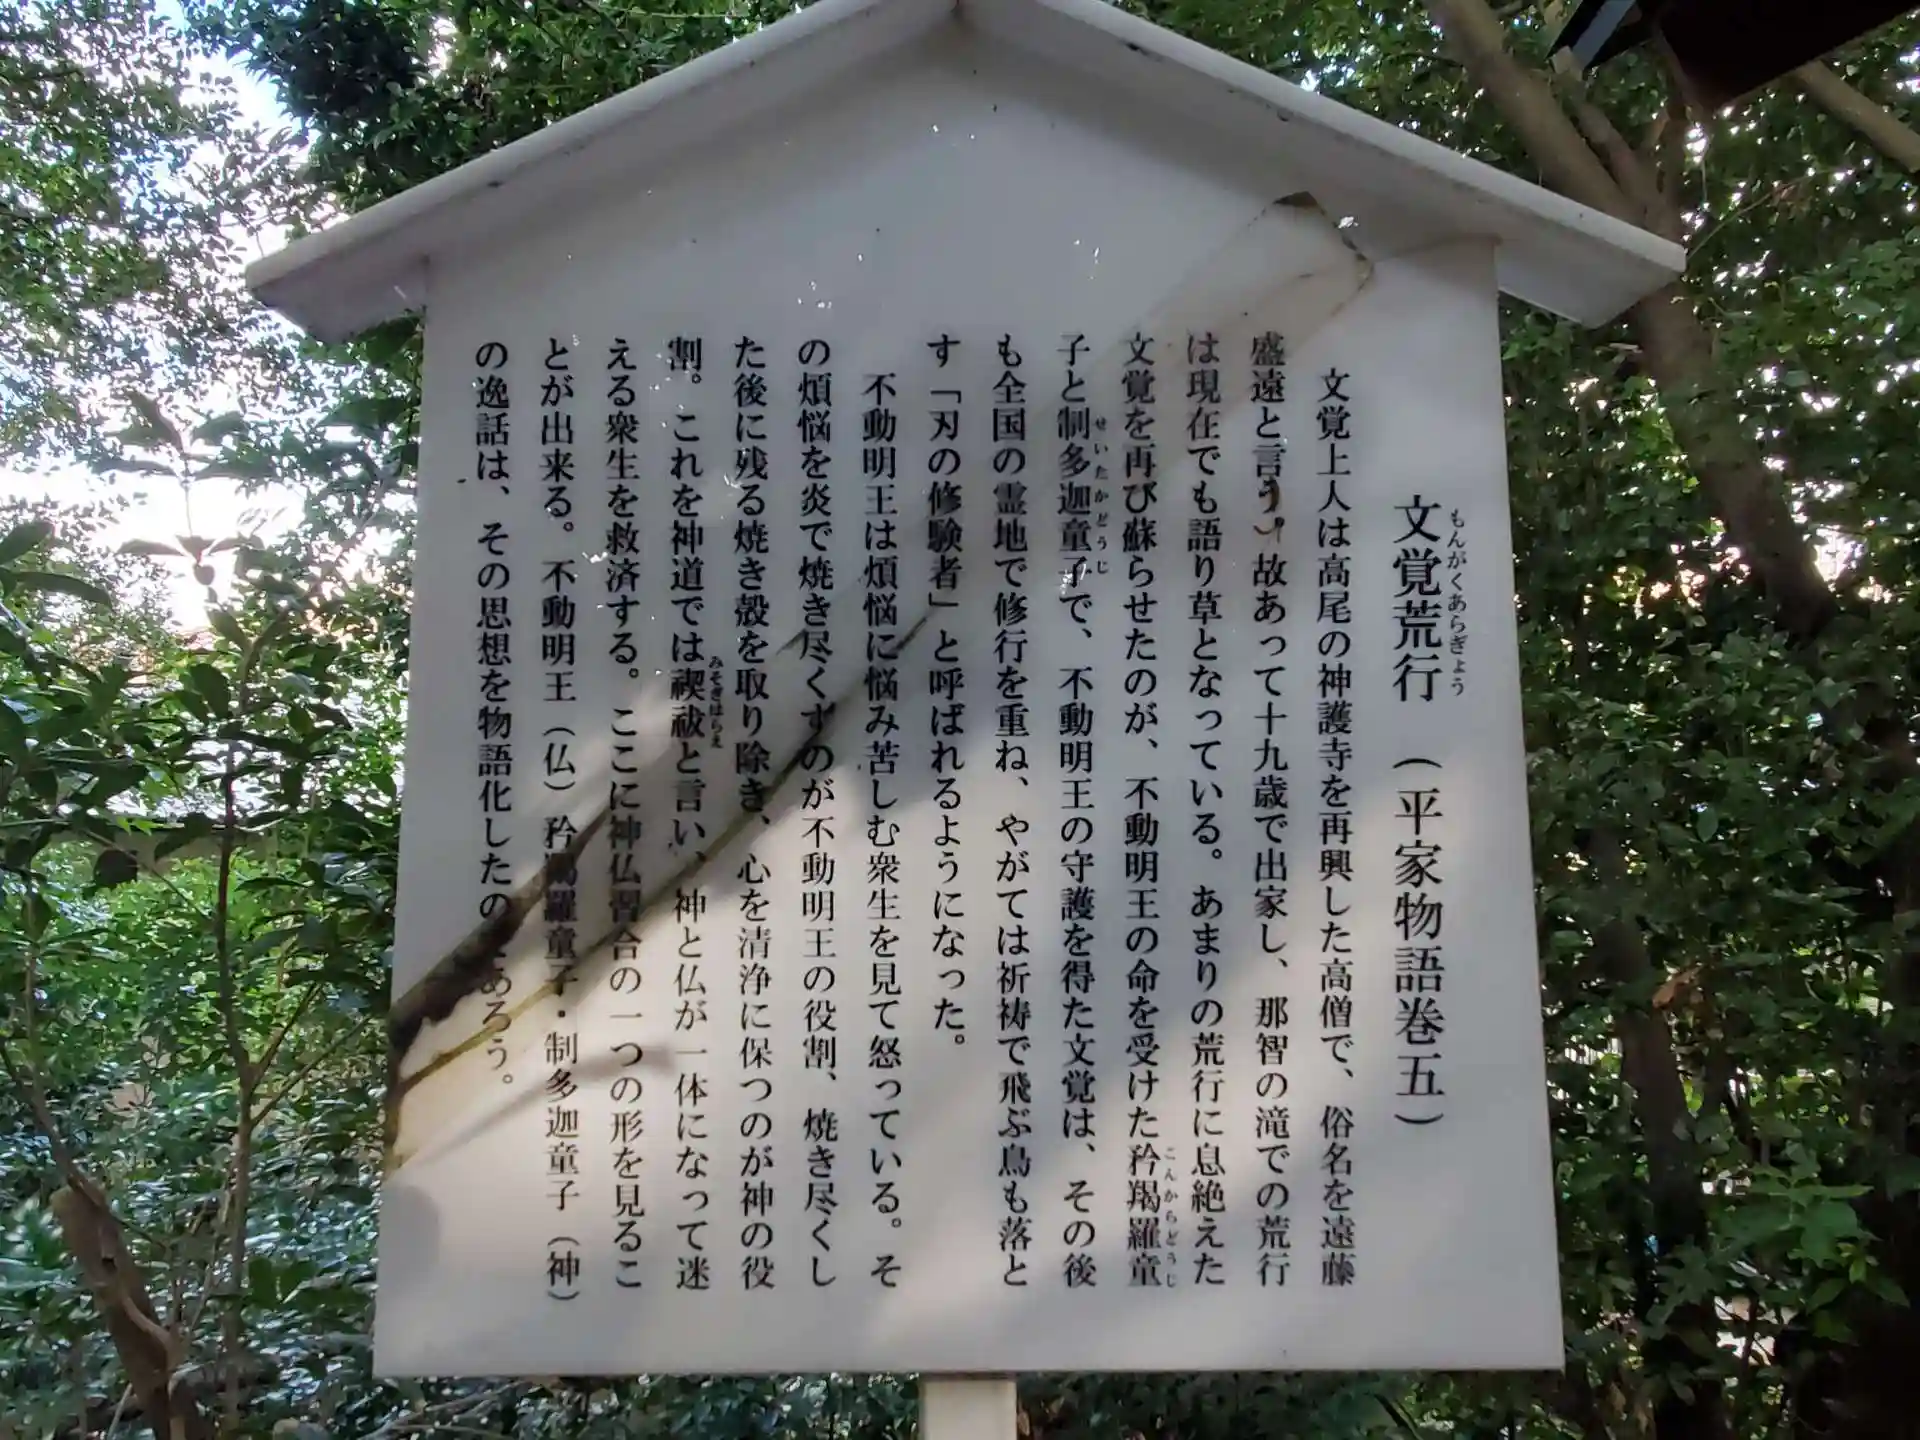 文覚荒行 （平家物語巻五）
もんがくあらぎょう
文覚上人は高尾の神護寺を再興した高僧で、俗名を遠藤
盛遠と言う。故あって十九歳で出家し、那智の滝での荒行
は現在でも語り草となっている。あまりの荒行に息絶えた
文覚を再び蘇らせたのが、不動明王の命を受けた矜羯羅童
こんからどうじ
子と制多迦童子で、不動明王の守護を得た文覚は、その後
せいたかどうじ
も全国の霊地で修行を重ね、やがては祈祷で飛ぶ鳥も落と
す「刃の修験者」と呼ばれるようになった。
不動明王は煩悩に悩み苦しむ衆生を見て怒っている。そ
の煩悩を炎で焼き尽くすのが不動明王の役割、焼き尽くし
た後に残る焼き殻を取り除き、心を清浄に保つのが神の役
割。これを神道では禊祓と言い、神と仏が一体になって迷
みそぎはらえ
える衆生を救済する。ここに神仏習合の一つの形を見るこ
とが出来る。不動明王（仏）矜羯羅童子・制多迦童子（神）
の逸話は、その思想を物語化したのであろう。